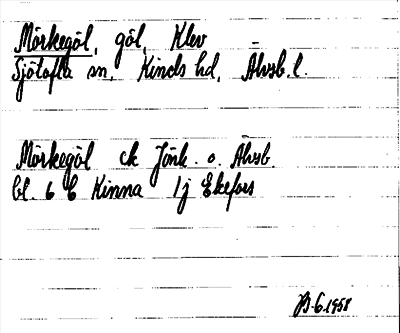 Mörkegöl, göl, Klev
Sjötofta sn, Kinds hd, Älvsb. l.
Mörkegöl ek Jönk. o. Älvsb.
bl. 6 C Kinna 1j Ekefors
6.1958